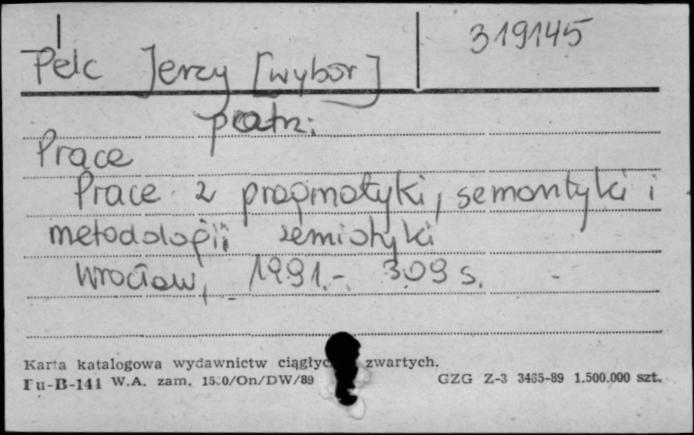 319145
Pelc Jerzy [wybór]
patrz:
Prace
Prace z pragmatyki, semantyki i
metodologii semiotyki
Wrocław, 1991.- 309 s.
Karta katalogowa wydawnictw zwartych.
Fu-B-141 W.A. zam. /On/DW/89 GZG Z-3 3465-89 1.500.000 szt.